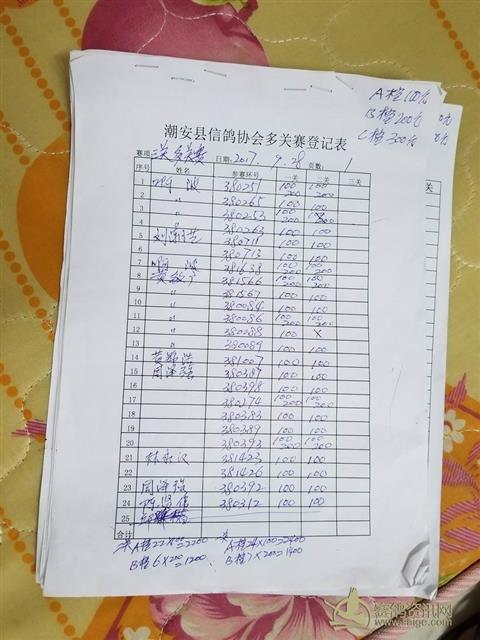 A档100元
B档200元
C档300元
潮安县信鸽协会多关赛登记表
赛项: 二关多关赛 日期: 2017. 9. 28 页数: 1
序号 姓名 参赛环号 一关 二关 三关
1 380251 100 200 100 200
2 〃 380265 100 100
3 〃 380253 100 200
4 380263 100 100
5 380711 100 100
6 380713 100 100
7 381638 100 200 100 200
8 381566 100 200 100 200
9 〃 381567 100 100
10 〃 380084 100 100
11 〃 380086 100 200 100 200
12 〃 380088 100 X
13 〃 380089 100 100
14 381007 100 100
15 周泽强 380387 100 100
16 380398 100 100
17 380274 100 200 100 200
18 380383 100 100
19 380389 100 100
20 380393 100 200 100 200
21 林永汉 381423 100 100
22 381426 100 100
23 周泽强 380392 100 100
24 380312 100 100
25
合计
A档22X100=2200 A档24X100=2400
B档6X200=1200 B档7X200=1400
赛鸽资讯网
www.saige.com